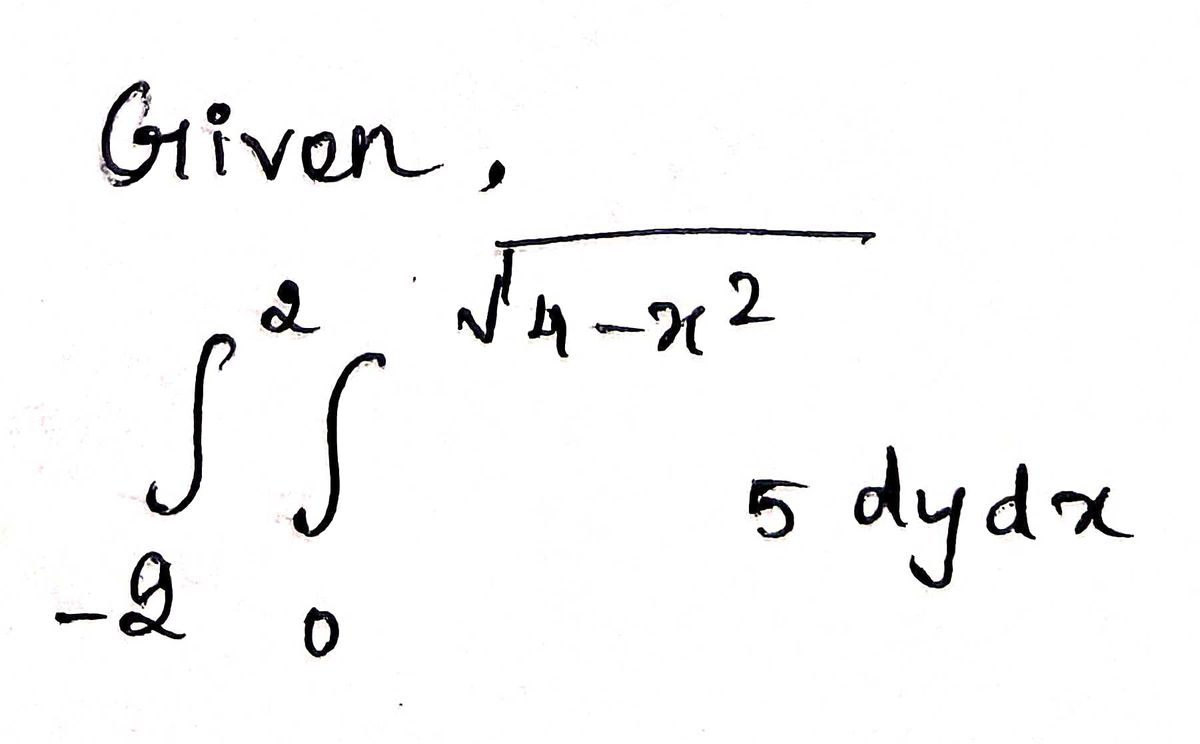 Given,
∫_{-2}^{2} ∫_{0}^{√(4-x²)} 5 dy dx